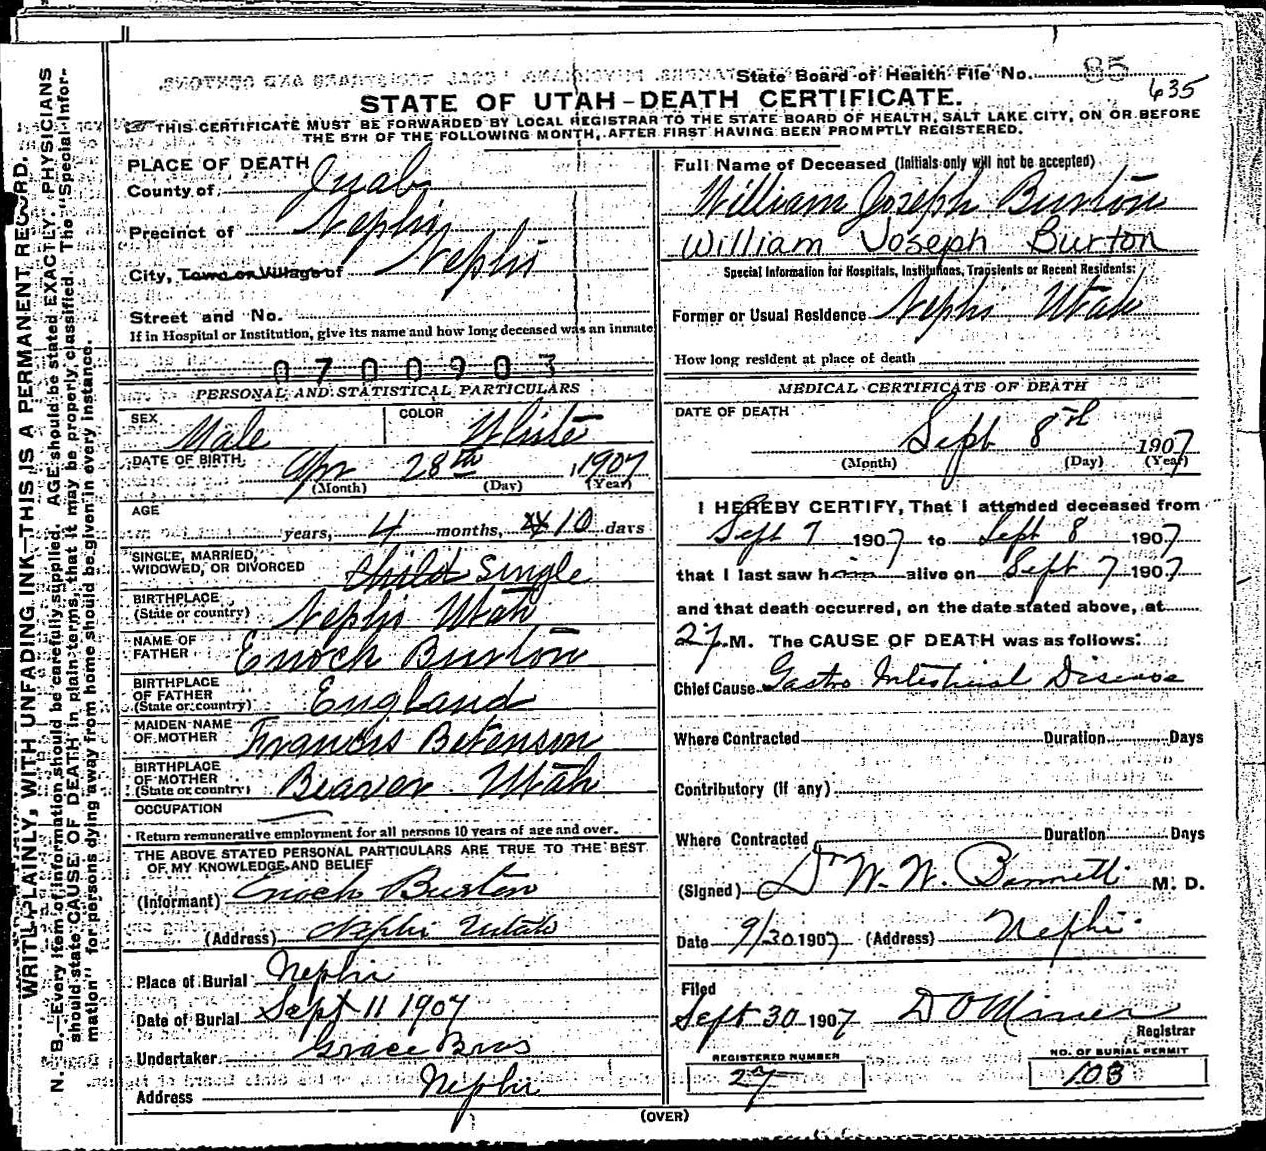 State Board of Health File No. 85
635
STATE OF UTAH-DEATH CERTIFICATE.
THIS CERTIFICATE MUST BE FORWARDED BY LOCAL REGISTRAR TO THE STATE BOARD OF HEALTH, SALT LAKE CITY, ON OR BEFORE
THE 5TH OF THE FOLLOWING MONTH, AFTER FIRST HAVING BEEN PROMPTLY REGISTERED.
WRITE PLAINLY, WITH UNFADING INK—THIS IS A PERMANENT RECORD.
N. B.—Every item of information should be carefully supplied. AGE should be stated EXACTLY. PHYSICIANS
should state CAUSE OF DEATH in plain terms, that it may be properly classified. The "Special Infor-
mation" for persons dying away from home should be given in every instance.
PLACE OF DEATH
County of Juab
Precinct of Nephi
City, Town or Village of Nephi
Street and No.
If in Hospital or Institution, give its name and how long deceased was an inmate
0700903
PERSONAL AND STATISTICAL PARTICULARS
SEX Male COLOR White
DATE OF BIRTH Apr 28th 1907
(Month) (Day) (Year)
AGE
years, 4 months, 10 days
SINGLE, MARRIED,
WIDOWED, OR DIVORCED Child Single
BIRTHPLACE
(State or country) Nephi Utah
NAME OF
FATHER Enoch Burton
BIRTHPLACE
OF FATHER
(State or country) England
MAIDEN NAME
OF MOTHER Francis Betenson
BIRTHPLACE
OF MOTHER
(State or country) Beaver Utah
OCCUPATION
Return remunerative employment for all persons 10 years of age and over.
THE ABOVE STATED PERSONAL PARTICULARS ARE TRUE TO THE BEST
OF MY KNOWLEDGE AND BELIEF
(Informant) Enoch Burton
(Address) Nephi Utah
Place of Burial Nephi
Date of Burial Sept 11 1907
Undertaker Grace Bros
Address Nephi
Full Name of Deceased (Initials only will not be accepted)
William Joseph Burton
William Joseph Burton
Special Information for Hospitals, Institutions, Transients or Recent Residents:
Former or Usual Residence Nephi Utah
How long resident at place of death
MEDICAL CERTIFICATE OF DEATH
DATE OF DEATH
Sept 8th 1907
(Month) (Day) (Year)
I HEREBY CERTIFY, That I attended deceased from
Sept 7 1907 to Sept 8 1907
that I last saw him alive on Sept 7 1907
and that death occurred, on the date stated above, at
M. The CAUSE OF DEATH was as follows:
Chief Cause Gastro Intestinal Disease
Where Contracted Duration Days
Contributory (if any)
Where Contracted Duration Days
(Signed) Dr W. W. M. D.
Date 9/30 1907 (Address) Nephi
Filed
Sept 30 1907 D O Miner
Registrar
REGISTERED NUMBER
27
NO. OF BURIAL PERMIT
103
(OVER)